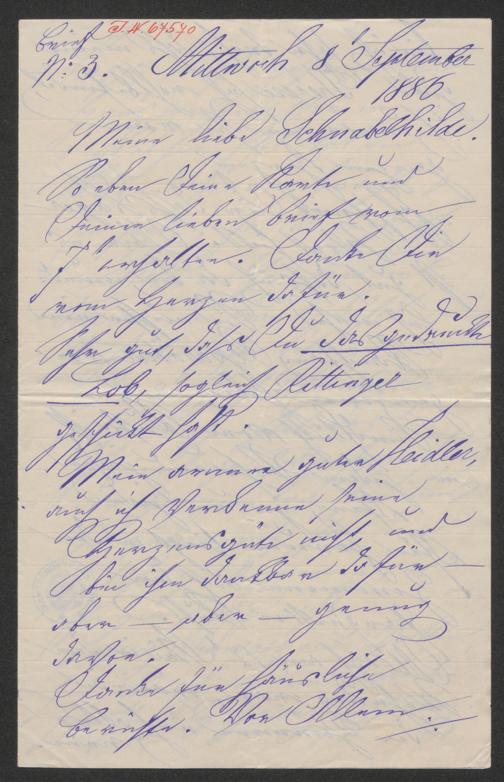 Brief J.N. 67570
N: 3. Mittwoch 8t September
1886
Meine liebe Schnabelhilde.
So eben Deine Karte und
Deinen lieben Brief vom
7t erhalten. Danke Dir
vom Herzen dafür.
Sehr gut, dass Du das gedruckte
Lob, sogleich Rittinger
geschickt hast.
Mein armer guter Heidler,
auch ich verkenne seine
Herzensgüte nicht, und
bin ihm dankbar dafür —
aber — aber — genug
davon.
Danke für häusliche
Berichte. Vor Allem